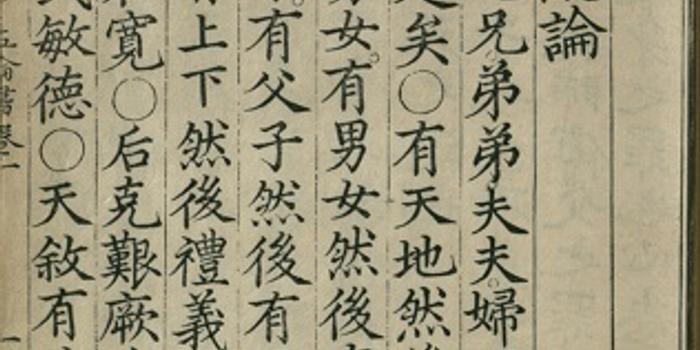 論
兄弟弟夫夫婦
矣○有天地然
女有男女然後
有父子然後有
上下然後禮義
寬○后克艱厥
敏德○天敘有